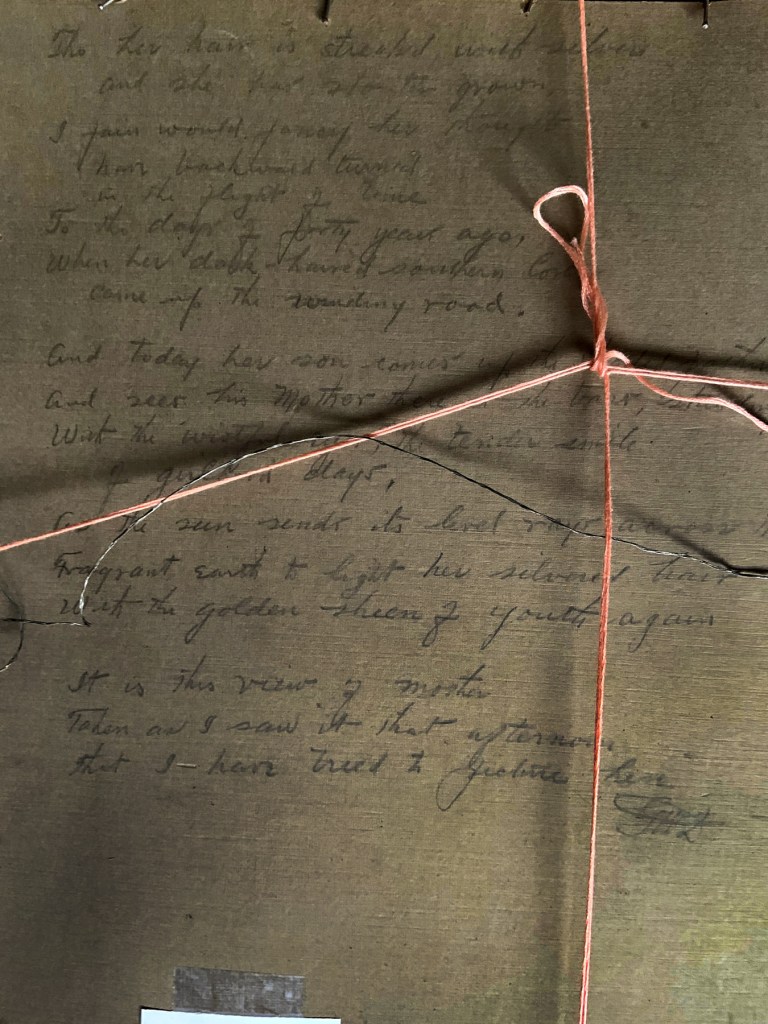 Tho her hair is streaked with silver
and she has stouter grown
I fain would fancy her thoughts
have backward turned
in the flight of time
To the days of forty years ago,
When her dark-haired southern lover
came up the winding road.
And today her son comes up the
And sees his Mother there as she
With the wistful the tender smile
of girlish days,
As the sun sends its level rays across
Fragrant Earth to light her silvered hair
With the golden sheen of youth again
It is this view of mother
Taken as I saw it that afternoon
that I have tried to picture here